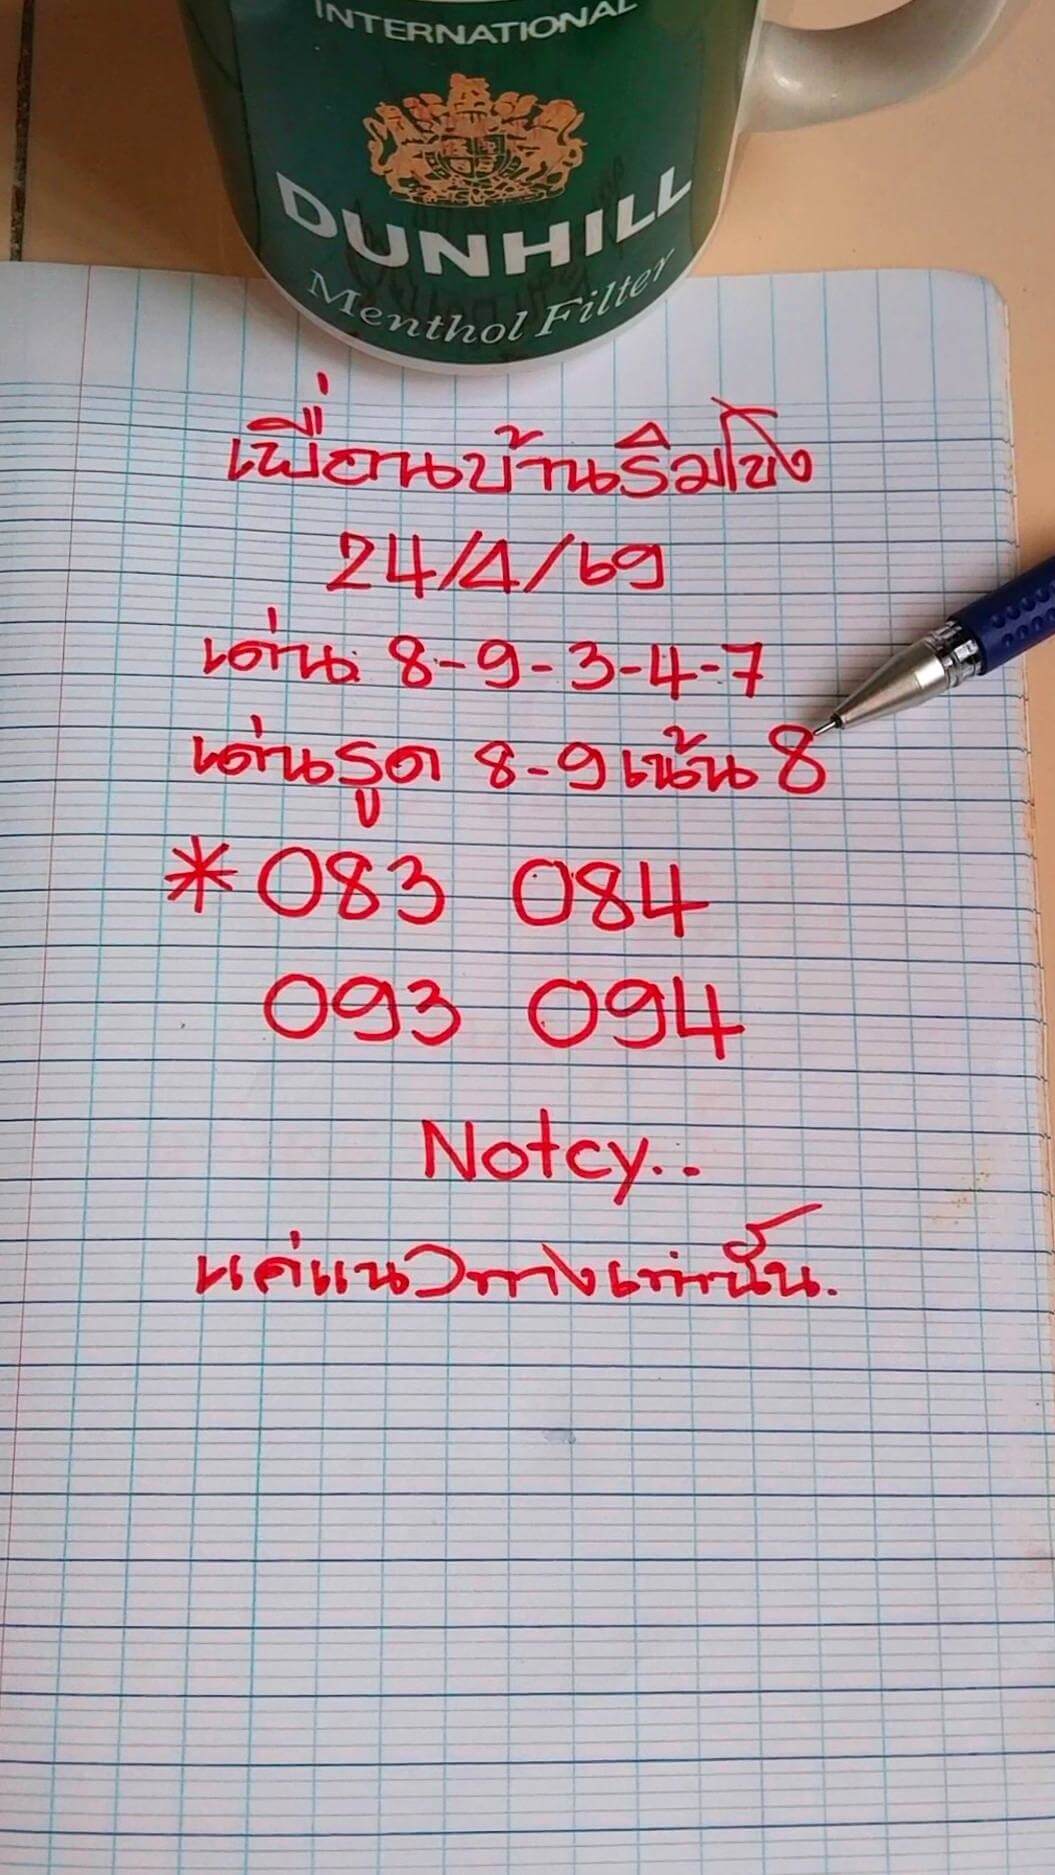 INTERNATIONAL
DUNHILL
Menthol Filter
เพื่อนบ้านริมโขง
24/4/69
เด่น 8-9-3-4-7
เด่นรูด 8-9 เน้น 8
*083 084
093 094
Notcy..
แค่แนวทางเท่านั้น.